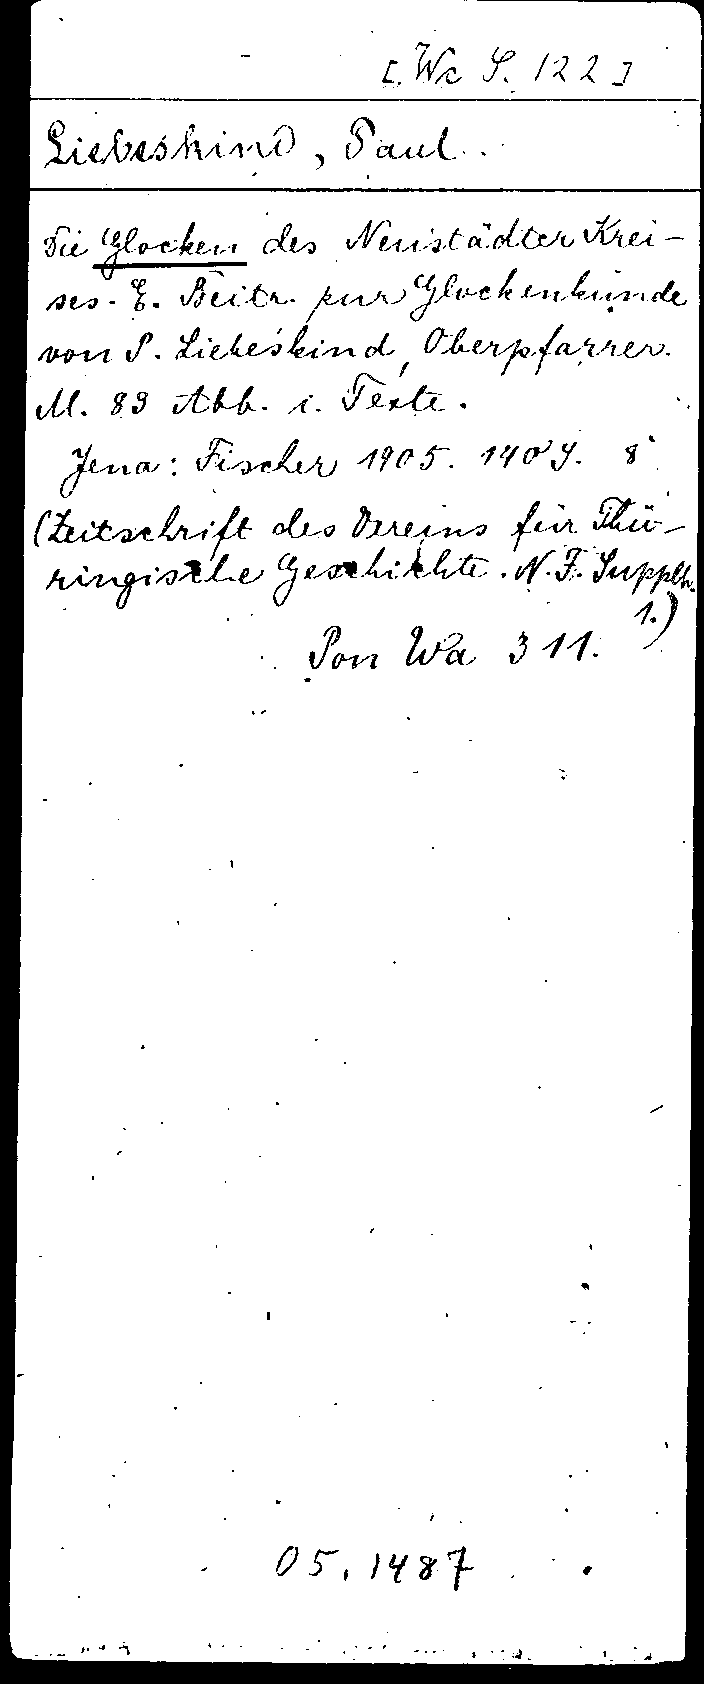 [Wc S. 122]
Liebeskind, Paul.
Die Glocken des Neustädter Krei-
ses. E. Beitr. zur Glockenkunde
von P. Liebeskind, Oberpfarrer.
M. 83 Abb. i. Texte.
Jena: Fischer 1905. 140 S. 8°
(Zeitschrift des Vereins für Thü-
ringische Geschichte. N. F. Supplh.
1.)
Pon Wa 311.
05.1487